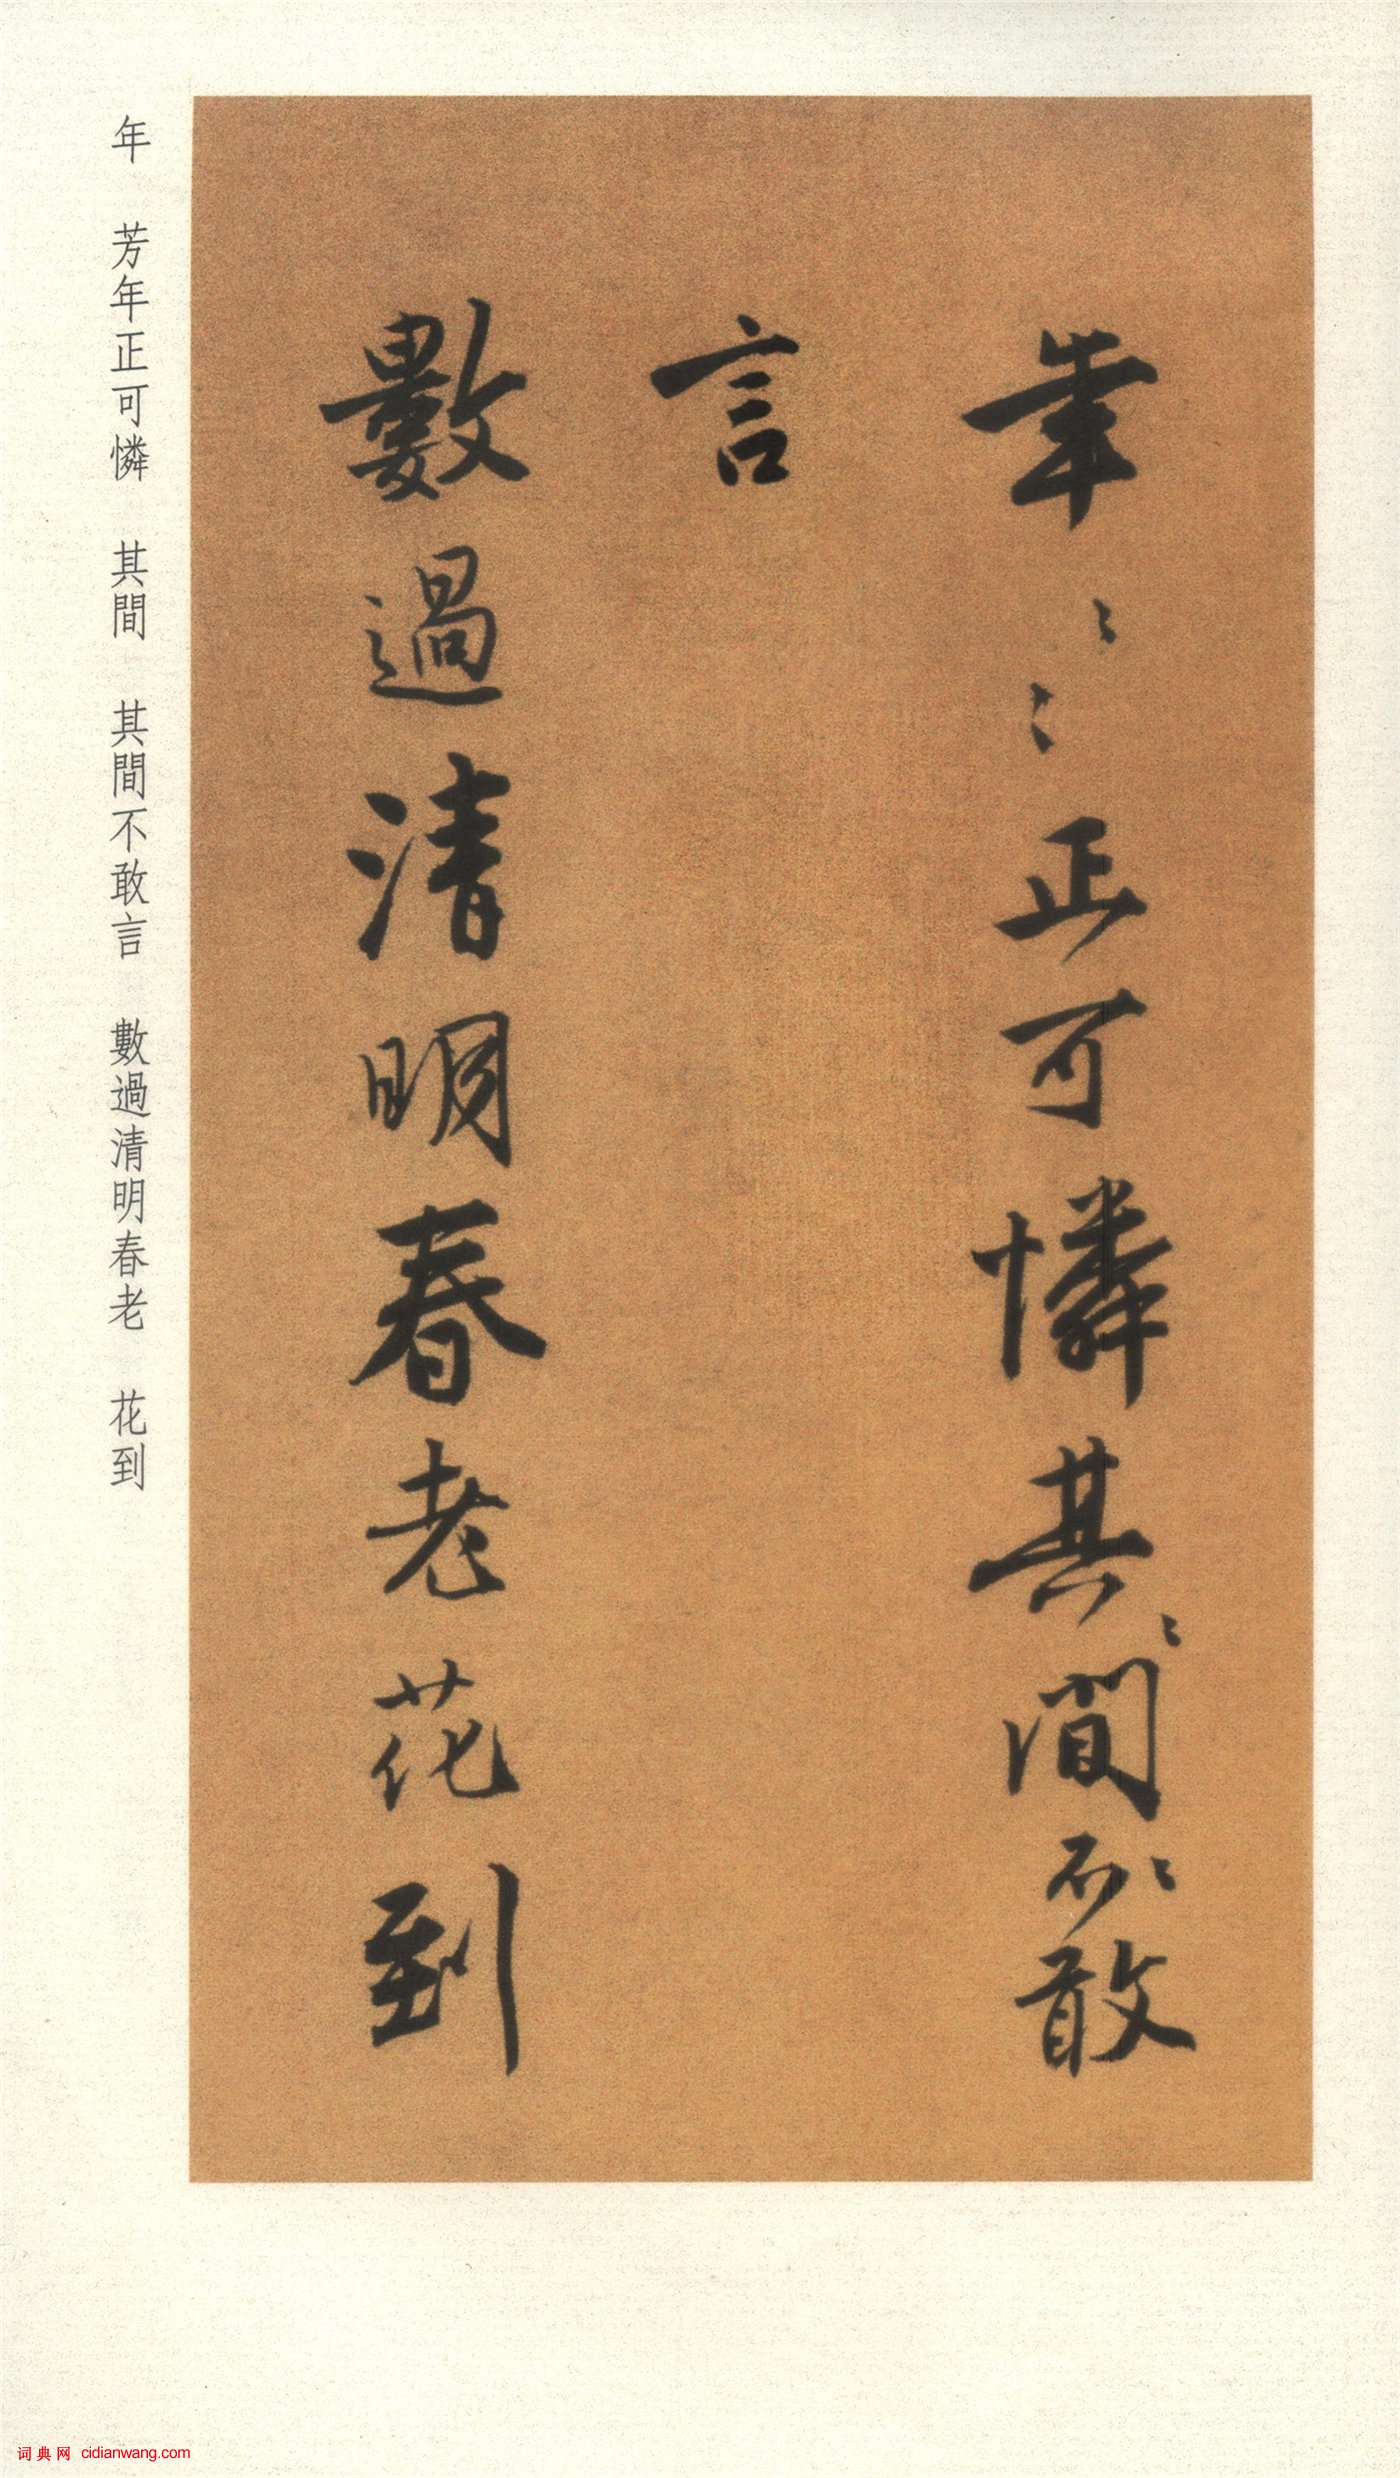 年〻〻正可憐其〻間〻不敢
言
數過清明春老花到
年　芳年正可憐　其間　其間不敢言　數過清明春老　花到
词典网 cidianwang.com